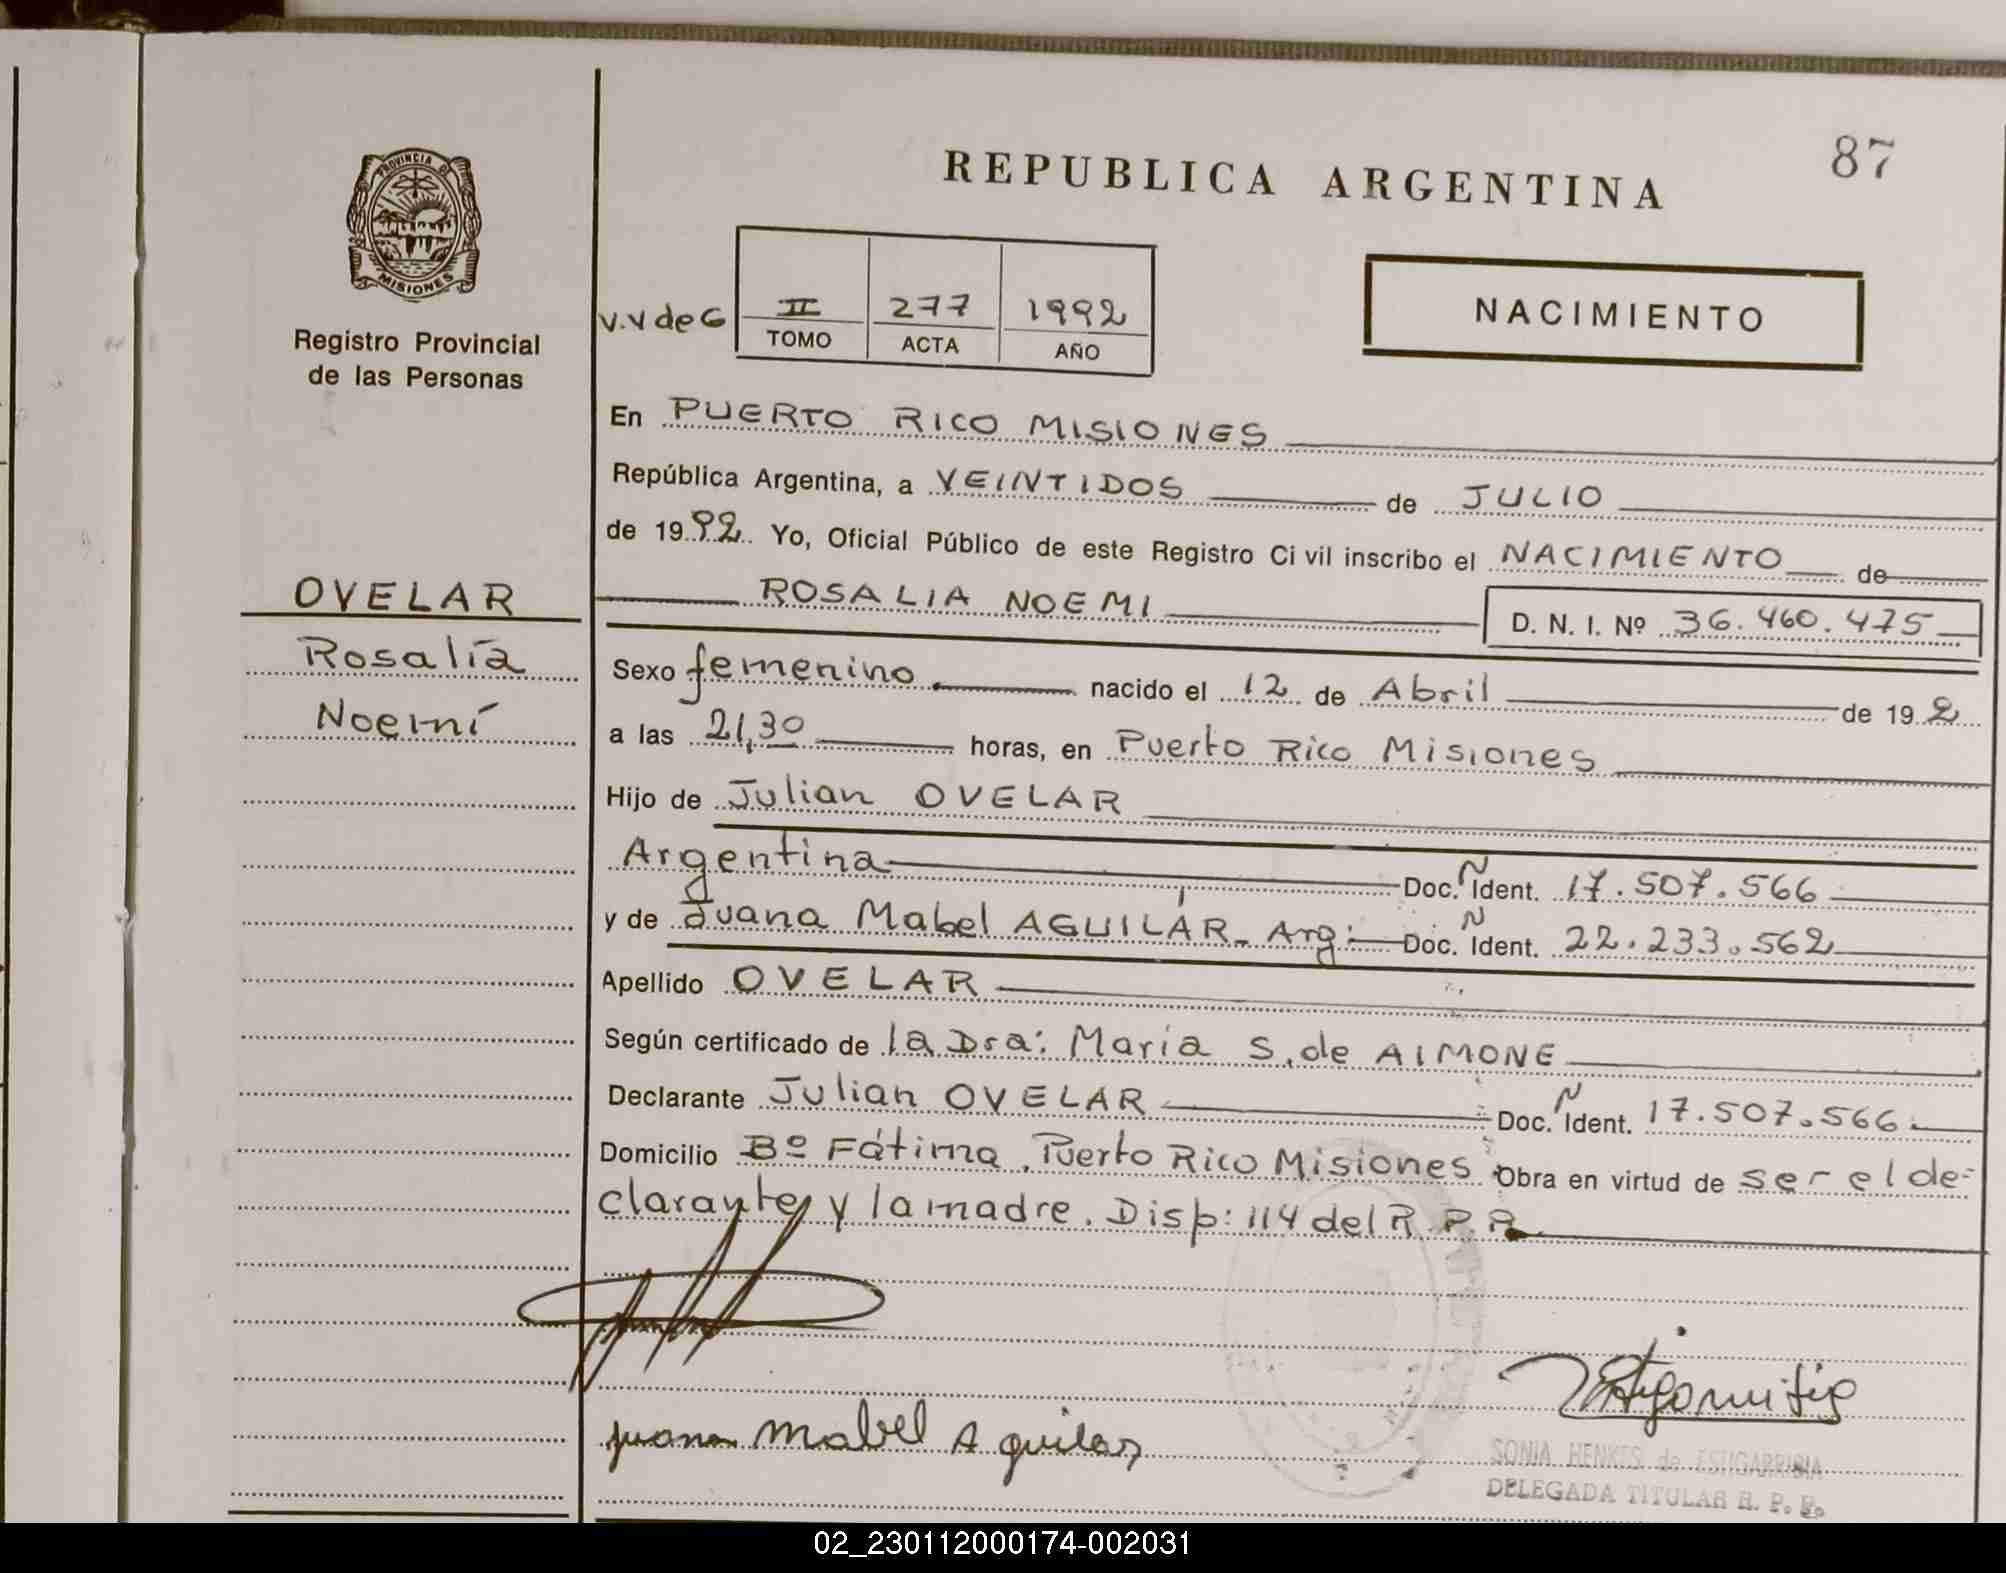 87
REPUBLICA ARGENTINA
PROVINCIA DE
MISIONES
Registro Provincial
de las Personas
V.V de G
II 277 1992
TOMO ACTA AÑO
NACIMIENTO
En PUERTO RICO MISIONES
República Argentina, a VEINTIDOS de JULIO
de 1992 Yo, Oficial Público de este Registro Ci vil inscribo el NACIMIENTO de
ROSALIA NOEMI D. N. I. Nº 36.460.475
OVELAR
Rosalía
Noemí
Sexo femenino nacido el 12 de Abril de 19 2
a las 21,30 horas, en Puerto Rico Misiones
Hijo de Julian OVELAR
Argentina Doc. N Ident. 17.507.566
y de Juana Mabel AGUILAR. Arg: Doc. N Ident. 22.233.562
Apellido OVELAR
Según certificado de la Dra: María S. de AIMONE
Declarante Julian OVELAR Doc. N Ident. 17.507.566
Domicilio Bº Fátima, Puerto Rico Misiones Obra en virtud de ser el de-
clarante y la madre. Disp: 114 del R. P. P.
juana mabel Aguilar
SONIA HENKES de ESTIGARRIBIA
DELEGADA TITULAR R. P. P.
02_230112000174-002031